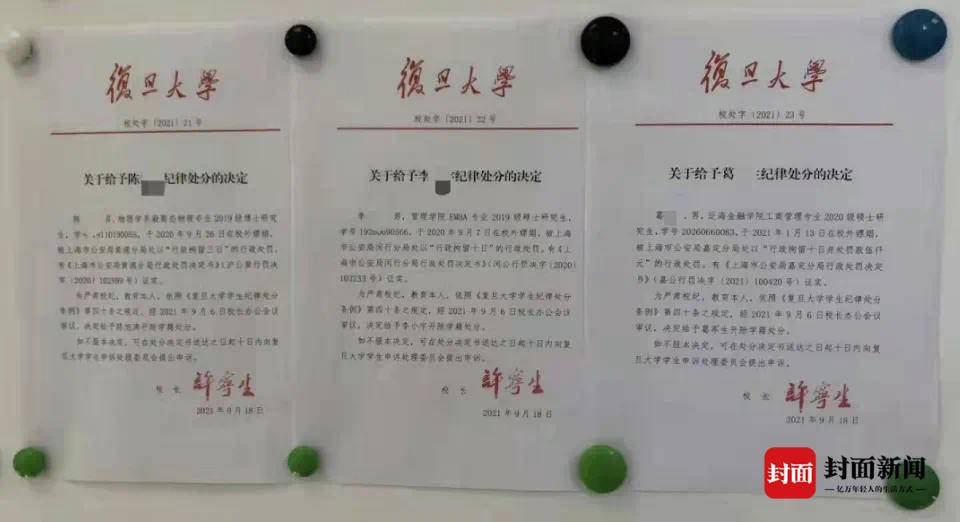 復旦大學
校处字〔2021〕21号
关于给予陈 纪律处分的决定
男,物理学系凝聚态物理专业2019级博士研究
生,学号 110190065,于2020年9月26日在校外嫖娼,
被上海市公安局黄浦分局处以“行政拘留三日”的行政处罚,
有《上海市公安局黄浦分局行政处罚决定书》(沪公黄行罚决
字〔2020〕
号)证实。
为严肃校纪,教育本人,依照《复旦大学学生纪律处分
条例》第四十条之规定,经2021年9月6日校长办公会议
审议,决定给予陈 开除学籍处分。
如不服本决定,可在处分决定书送达之日起十日内向复
旦大学学生申诉处理委员会提出申诉。
校 长 許寧生
2021年9月18日
復旦大學
校处字〔2021〕22号
关于给予李 纪律处分的决定
李 ,男,管理学院EMBA专业2019级硕士研究生,
学号192 090566,于2020年9月7日在校外嫖娼,被
上海市公安局闵行分局处以“行政拘留十日”的行政处罚,有《上
海市公安局闵行分局行政处罚决定书》(闵公行罚决字〔2020〕
102233号)证实。
为严肃校纪,教育本人,依照《复旦大学学生纪律处分
条例》第四十条之规定,经2021年9月6日校长办公会议
审议,决定给予李小宇开除学籍处分。
如不服本决定,可在处分决定书送达之日起十日内向复
旦大学学生申诉处理委员会提出申诉。
校 长 許寧生
2021年9月18日
復旦大學
校处字〔2021〕23号
关于给予葛 纪律处分的决定
葛 ,男,泛海金融学院工商管理专业2020级硕士研
究生,学号20260660083,于2021年1月13日在校外嫖娼,
被上海市公安局嘉定分局处以“行政拘留十日并处罚款伍仟
元”的行政处罚,有《上海市公安局嘉定分局行政处罚决定
书》(嘉公行罚决字〔2021〕100420号)证实。
为严肃校纪,教育本人,依照《复旦大学学生纪律处分
条例》第四十条之规定,经2021年9月6日校长办公会议
审议,决定给予葛军生开除学籍处分。
如不服本决定,可在处分决定书送达之日起十日内向复
旦大学学生申诉处理委员会提出申诉。
校 长 許寧生
2021年9月18日
封面 封面新闻
亿万年轻人的生活方式